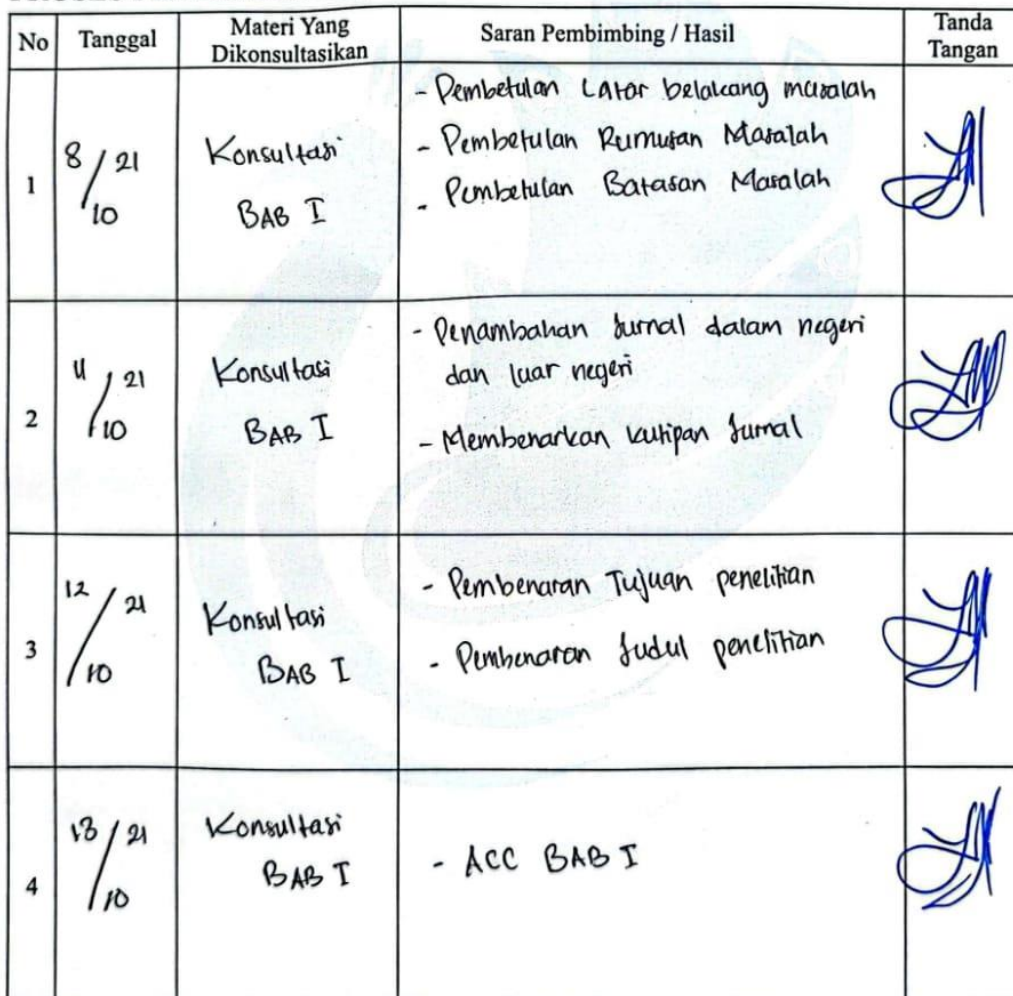 No
Tanggal
Materi Yang
Dikonsultasikan
Saran Pembimbing / Hasil
Tanda
Tangan
1
8/10 21
Konsultasi
BAB I
- Pembetulan Latar belakang masalah
- Pembetulan Rumusan Masalah
- Pembetulan Batasan Masalah
2
11/10 21
Konsultasi
BAB I
- Penambahan Jurnal dalam negeri
dan luar negeri
- Membenarkan kutipan Jurnal
3
12/10 21
Konsultasi
BAB I
- Pembenaran Tujuan penelitian
- Pembenaran Judul penelitian
4
13/10 21
Konsultasi
BAB I
- ACC BAB I